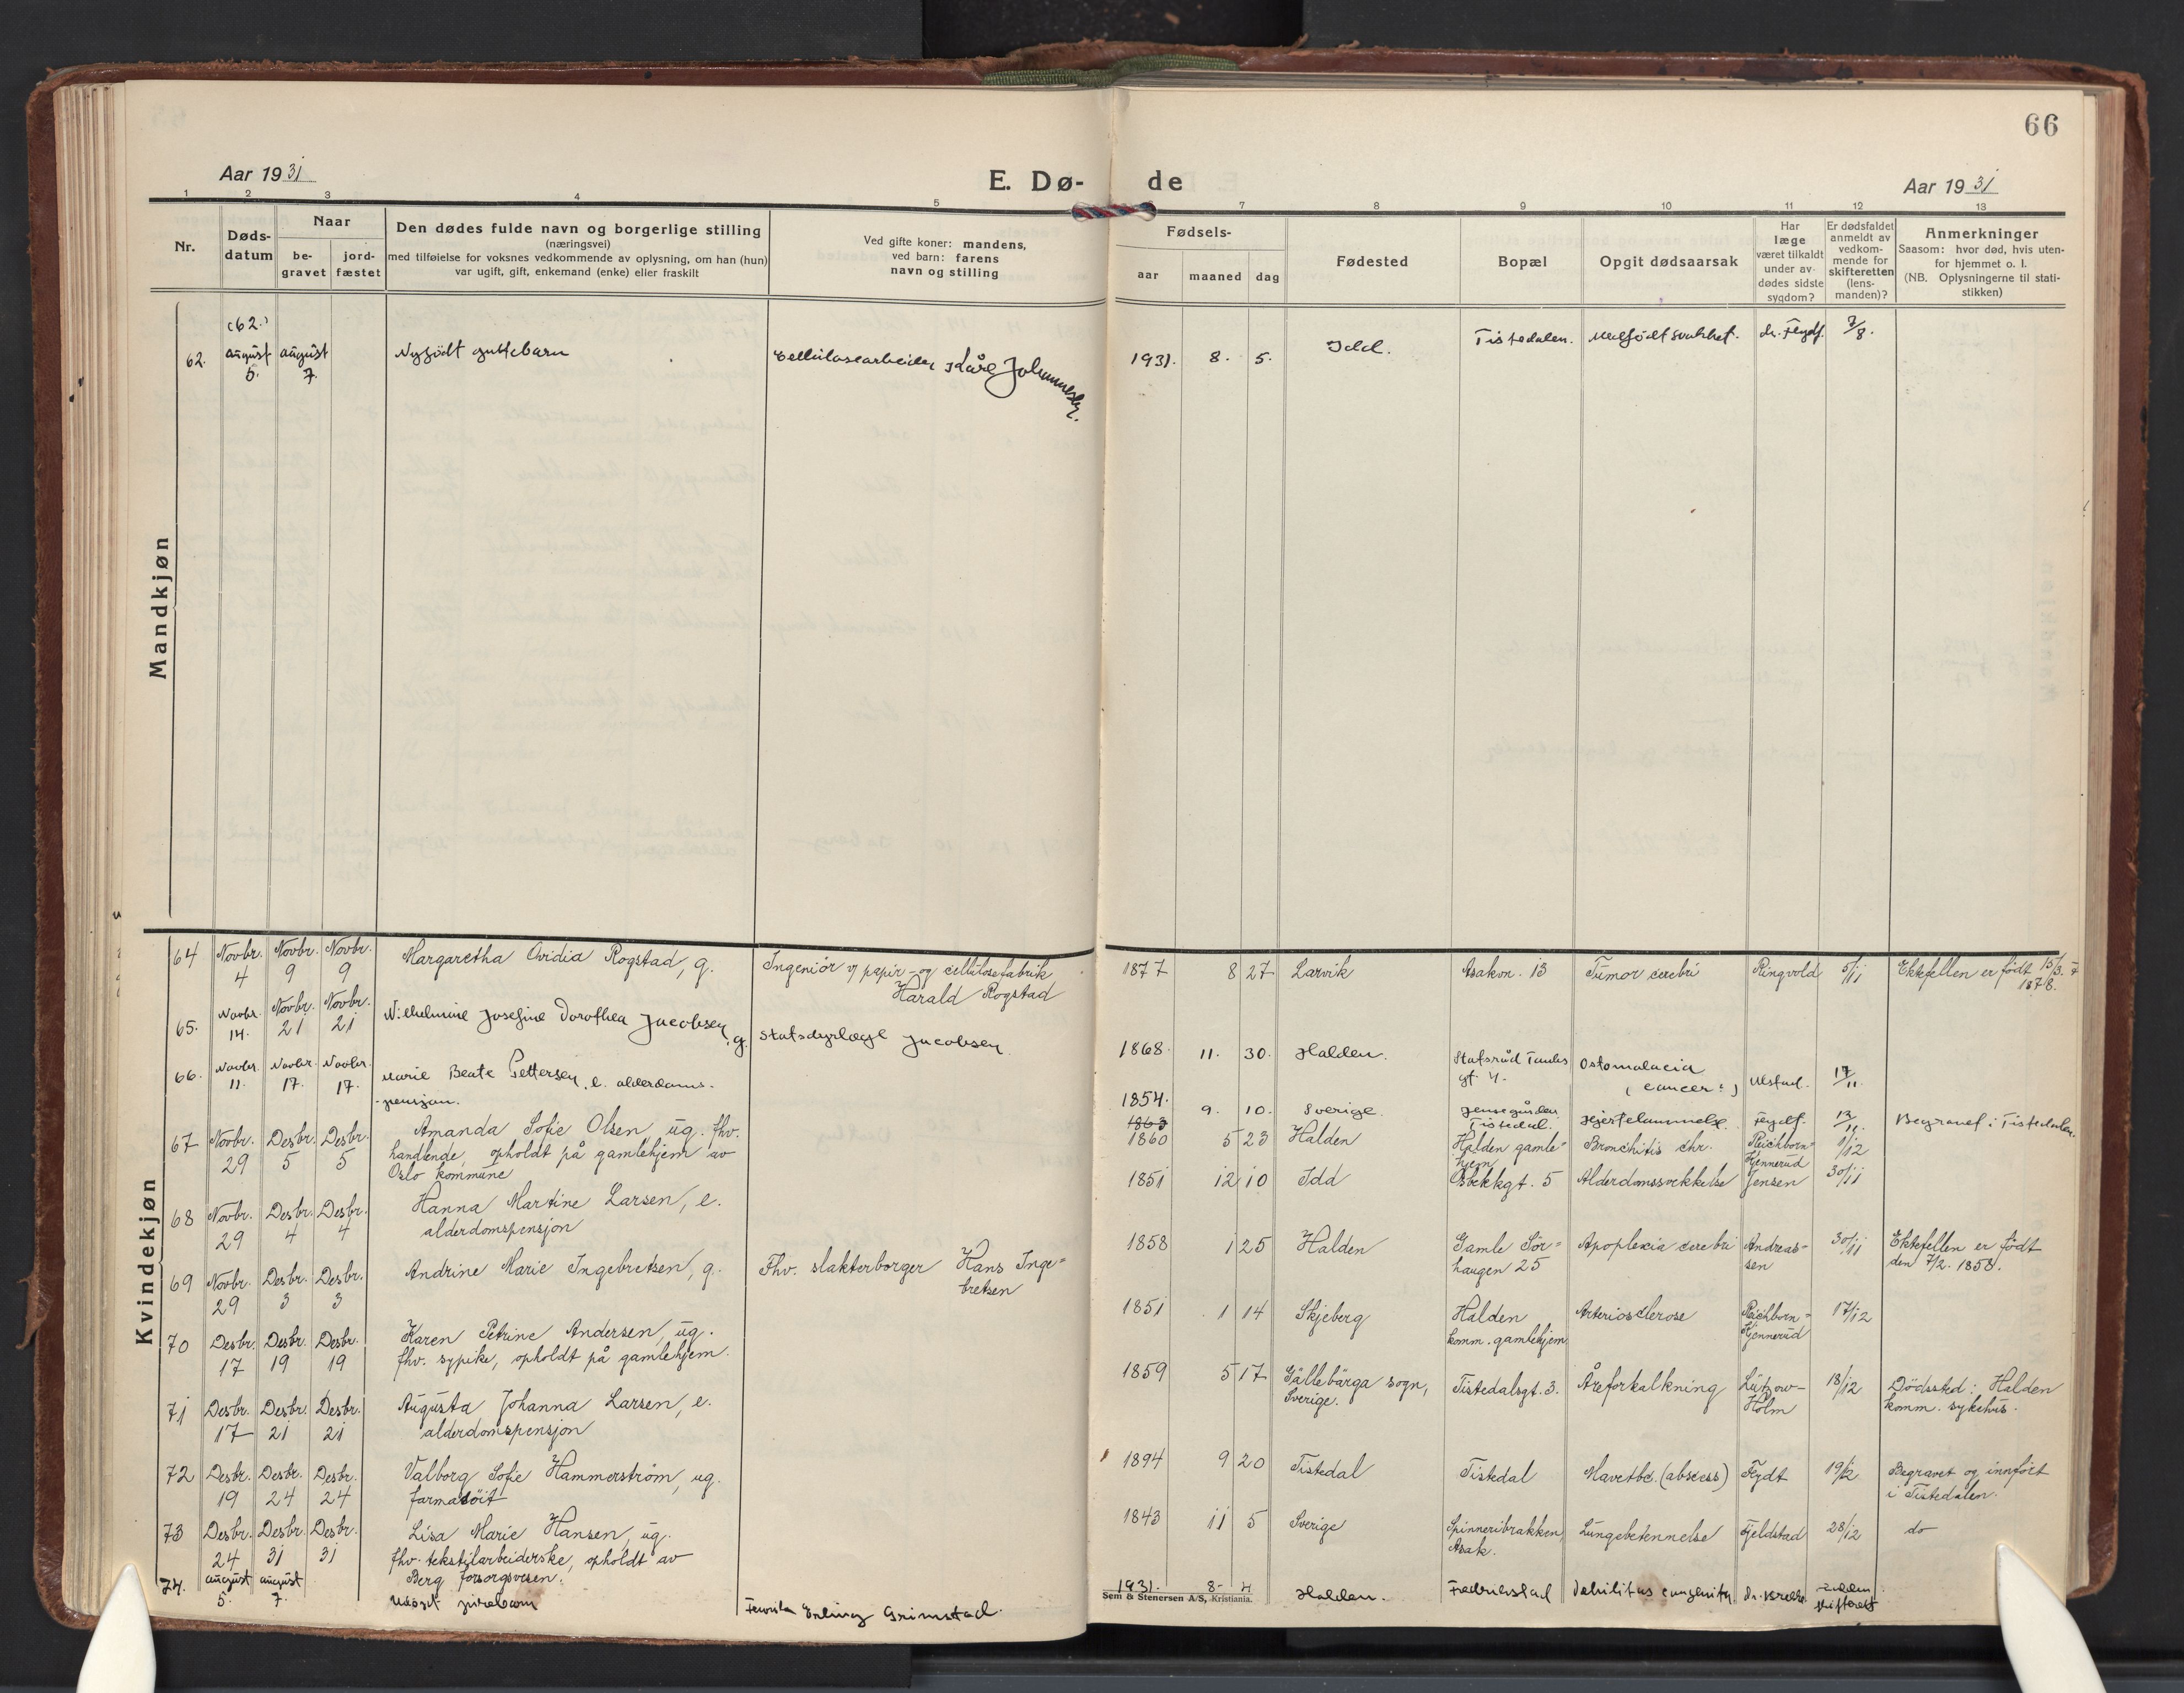 66
Aar 1931
E. Dø-
de
Aar 1931
1 2 3 4 5 7 8 9 10 11 12 13
Nr.
Døds-
datum
Naar
be-
gravet
jord-
fæstet
Den dødes fulde navn og borgerlige stilling
(næringsvei)
med tilføielse for voksnes vedkommende av oplysning, om han (hun)
var ugift, gift, enkemand (enke) eller fraskilt
Ved gifte koner: mandens,
ved barn: farens
navn og stilling
Fødsels-
aar maaned dag
Fødested
Bopæl
Opgit dødsaarsak
Har
læge
været tilkaldt
under av-
dødes sidste
sygdom?
Er dødsfaldet
anmeldt av
vedkom-
mende for
skifteretten
(lens-
manden)?
Anmerkninger
Saasom: hvor død, hvis uten-
for hjemmet o. l.
(NB. Oplysningerne til stati-
stikken)
Mandkjøn
(62.)
62. august august Nyfödt guttebarn Cellulosearbeider Kåre
5. 7.
1931. 8. 5. Idd. Tistedalen. Medfödt svakhet. dr. 7/8.
Kvindekjøn
64 Novbr. Novbr. Novbr. Margaretha Ovidia Rogstad, g. Ingeniör v/ papir- og cellulosefabrik
4 9 9 Harald Rogstad
1877 8 27 Larvik Asakvn. 13 Tumor cerebri Ringvold 5/11 Ektefellen er födt 15/3.
1878.
65. Novbr. Novbr. Novbr. Wilhelmine Josefine Dorothea Jacobsen, g. Statsdyrlæge Jacobsen
14. 21 21
1868. 11. 30. Halden. Statsråd
gt 4. Ostomalacia
(cancer?) 17/11.
66. Novbr. Novbr. Novbr. Marie Beate Pettersen, e. alderdoms-
11. 17. 17. pensjon.
1854. 9. 10. Sverige.
Tistedal. Hjertelammelse. 13/11. Begravet i Tistedalen.
1863
67 Novbr. Desbr. Desbr. Amanda Sofie Olsen, ug. fhv.
29 5 5 handlende, opholdt på gamlehjem av
Oslo kommune
1860 5 23 Halden Halden gamle-
hjem Bronchitis chr. Reichborn-
Kjennerud 1/12
68 Novbr. Desbr. Desbr. Hanna Martine Larsen, e.
29 4 4 alderdomspensjon
1851 12 10 Idd Alderdomssvekkelse Jensen 30/11
69 Novbr. Desbr. Desbr. Andrine Marie Ingebretsen, g. Fhv. slakterborger Hans Inge-
29 3 3 bretsen
1858 1 25 Halden Gamle Sör-
haugen 25 Apoplexia cerebri Andreas-
sen 30/11 Ektefellen er födt
den 7/2. 1858.
70 Desbr. Desbr. Desbr. Karen Petrine Andersen, ug.
17 19 19 fhv. sypike, opholdt på gamlehjem.
1851 1 14 Skjeberg Halden
komm. gamlehjem Arteriosclerose Reichborn-
Kjennerud 17/12
71 Desbr. Desbr. Desbr. Augusta Johanna Larsen, e.
17 21 21 alderdomspensjon
1859 5 17 Gällebärga sogn,
Sverige. Tistedalsgt. 3. Åreforkalkning Lützow-
Holm 18/12 Dödssted: Halden
komm. sykehus.
72 Desbr. Desbr. Desbr. Valborg Sofie Hammerström, ug.
19 24 24 farmasöit
1894 9 20 Tistedal Tistedal (abscess) 19/12 Begravet og innfört
i Tistedalen.
73 Desbr. Desbr. Desbr. Lisa Marie Hansen, ug.
24 31 31 fhv. tekstilarbeiderske, opholdt av
Berg forsorgsvesen.
1843 11 5 Sverige Spinneribrakken,
Asak. Lungebetennelse Fjeldstad 28/12 do
74. august august pikebarn Erling Grimstad.
5. 7.
1931. 8- 4 Halden. Fredrikstad Debilitas
skifterett
Sem & Stenersen A/S, Kristiania.